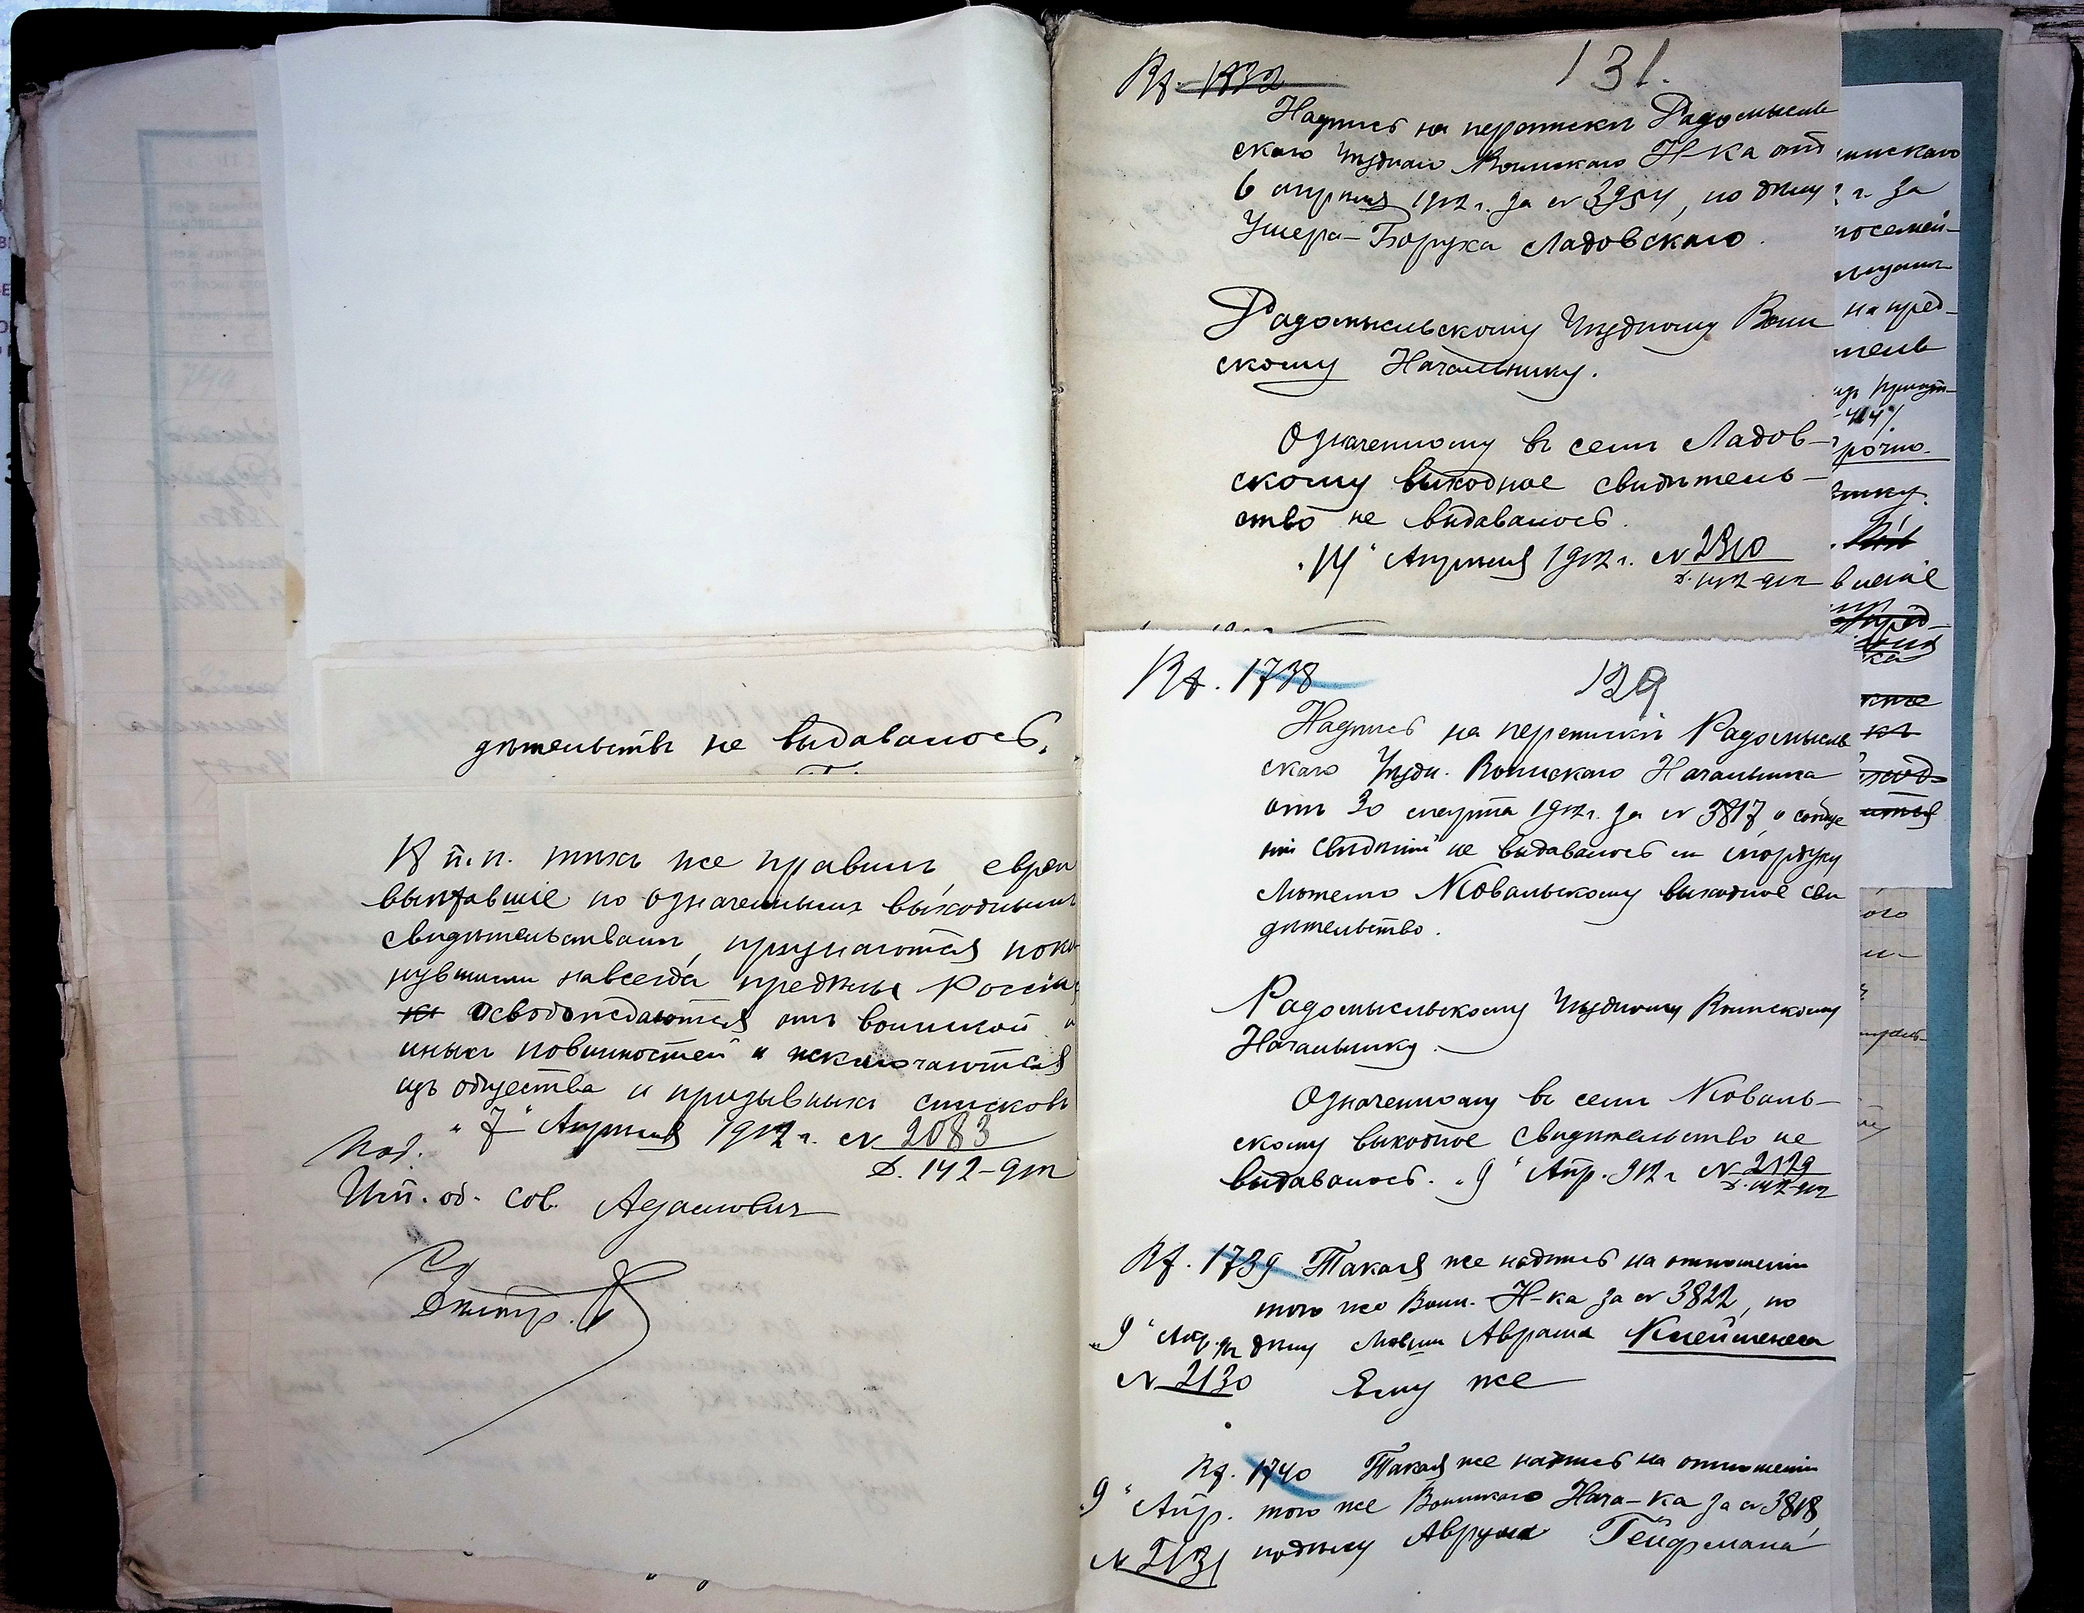 дѣтельство не выдавалось.
И п.п. тѣхъ же правилъ евреи
выѣхавшіе по означеннымъ выходнымъ
свидѣтельствамъ, признаются поки
нувшими навсегда предѣлы Россіи,
освобождаются отъ воинской и
иныхъ повинностей и исключаются
изъ общества и призывныхъ списковъ
"7" Апрѣля 1912 г. № 2083
Под.
д. 142-912
Исп. об. сов. Адамовичъ
131.
Вх. 1832
Надпись на перепискѣ Радомысль
скаго Уѣзднаго Воинскаго Н-ка отъ
6 апрѣля 1912 г. за № 3954, по дѣлу
Ушера-Боруха Ладовскаго.
Радомысльскому Уѣздному Воин
скому Начальнику.
Означенному въ семъ Ладов-
скому выходное свидѣтель-
ство не выдавалось.
"14" Апрѣля 1912 г. № 2310
д. 142-912
Вх. 1738
129
Надпись на перепискѣ Радомысль
скаго Уѣзд. Воинскаго Начальника
отъ 30 марта 1912 г. за № 3817 о
свѣдѣній не выдавалось ли Мордуху
Мотелю Ковальскому выходное сви
дѣтельство.
Радомысльскому Уѣздному Воинскому
Начальнику.
Означенному въ семъ Коваль-
скому выходное свидѣтельство не
выдавалось. "9" Апр. 912 г. № 2129
д. 142-912
Вх. 1739 Такая же надпись на отношеніи
того же Воин. Н-ка за № 3822, по
"9" Апр. дѣлу Мовши Аврама Клейменова
№ 2130 Ему же
Вх. 1740 Такая же надпись на отношеніи
"9" Апр. того же Воинскаго Нача-ка за № 3818,
№ 2131 по дѣлу Аврума Гейфмана